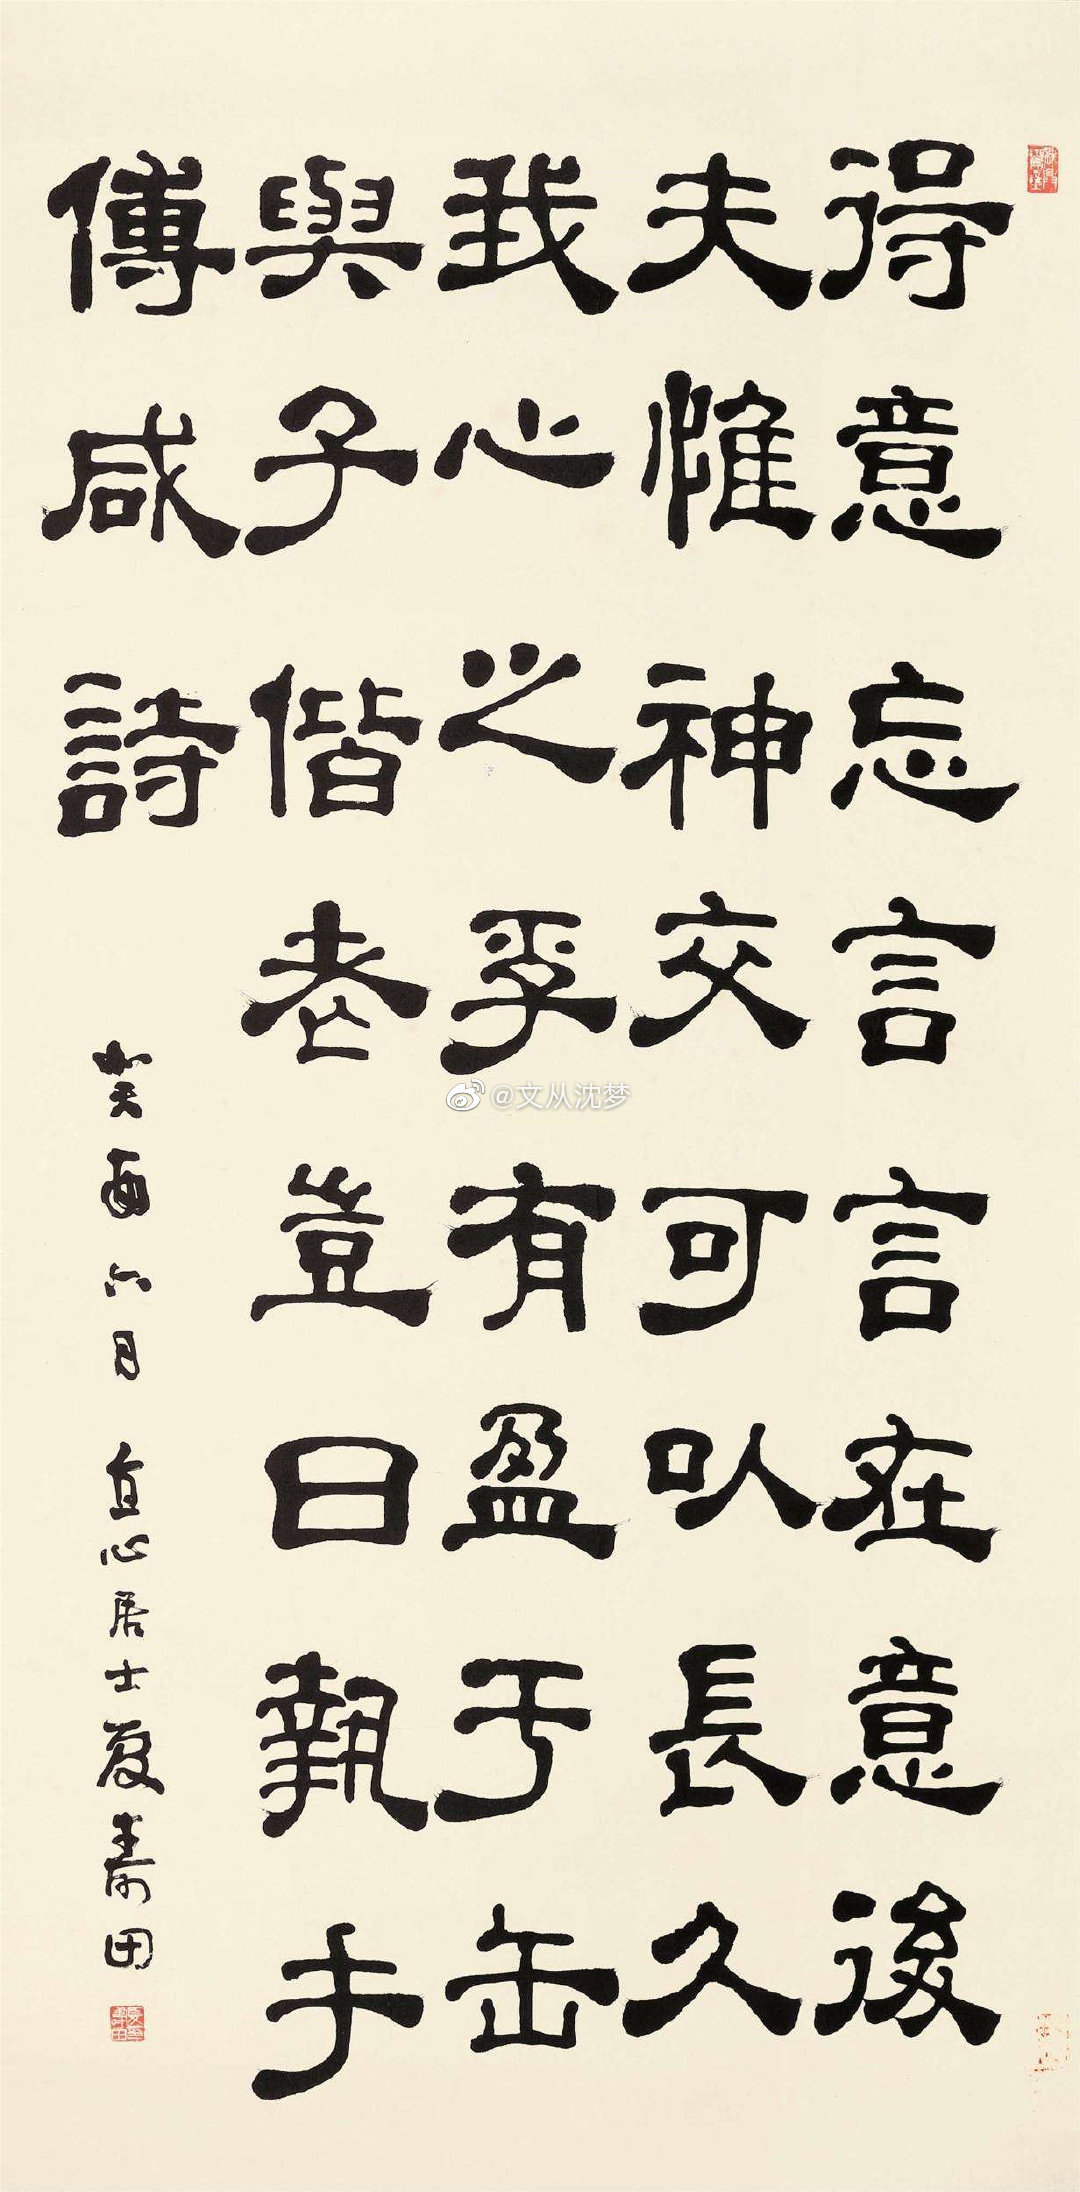 得意忘言言在意後
夫惟神交可以長久
我心之孚有盈于缶
與子偕老豈曰執手
傅咸詩
癸酉六月直心居士夏壽田
@文从沈梦